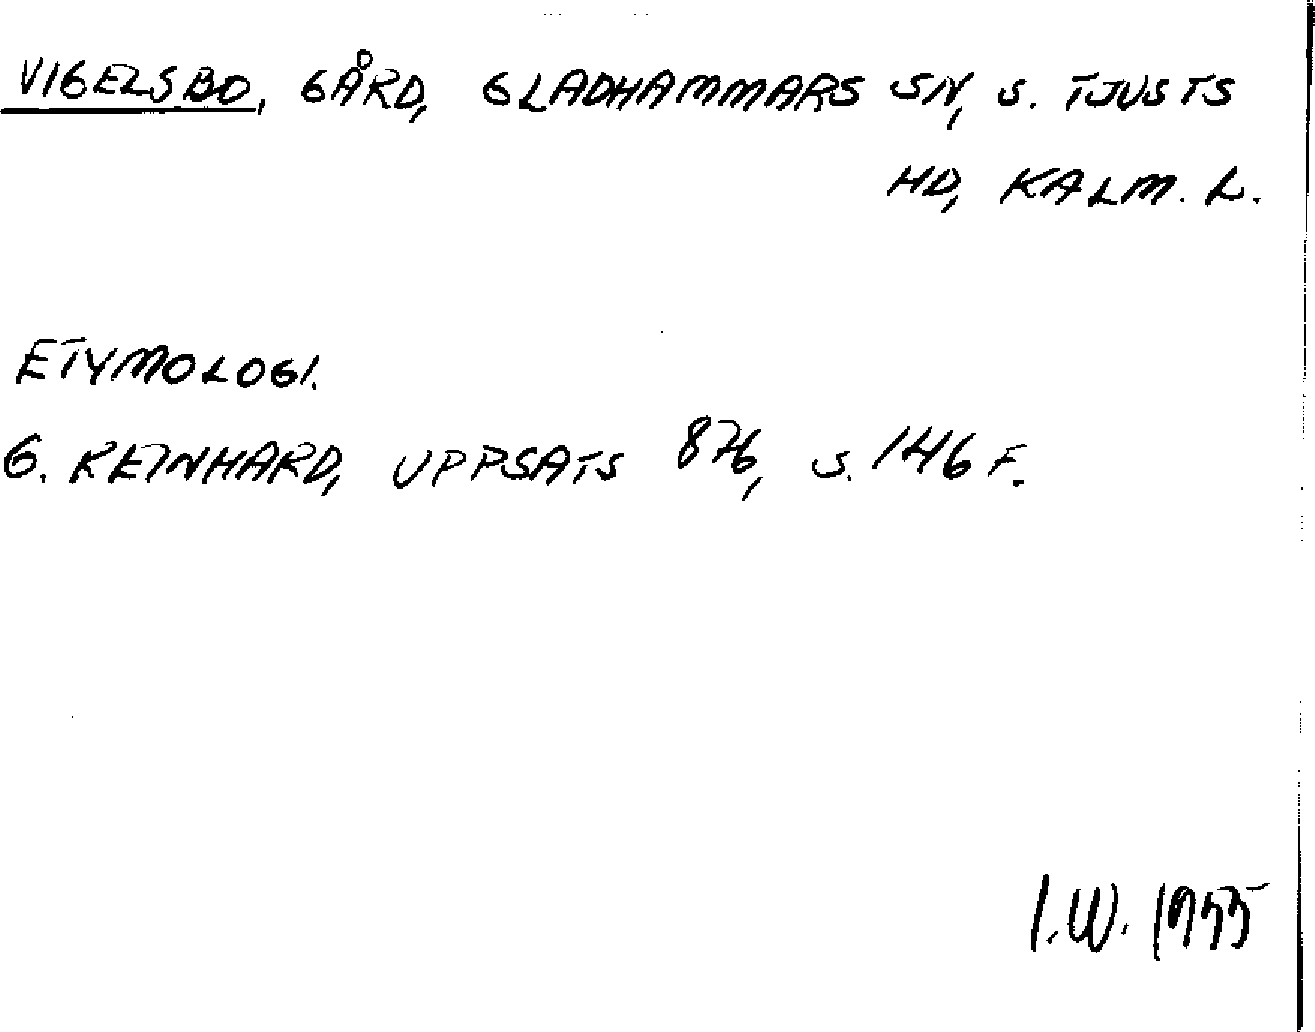 VIGELSBO, GÅRD, GLADHAMMARS SN, S. TJUSTS
HD, KALM. L.
ETYMOLOGI.
G. REINHARD, UPPSATS 876, S. 146 F.
I.W. 1955